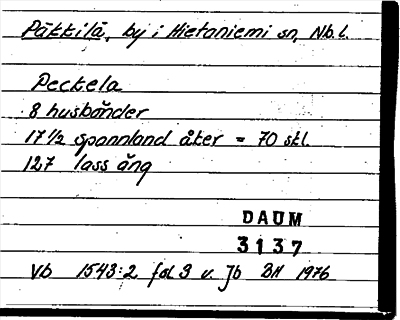 Päkkilä, by i Hietaniemi sn, Nb.l.
Peckela
8 husbönder
17 1/2 spannland åker = 70 skl.
127 lass äng
DAUM
3137
Vb 1543:2 fol 3 v Jb BH 1976